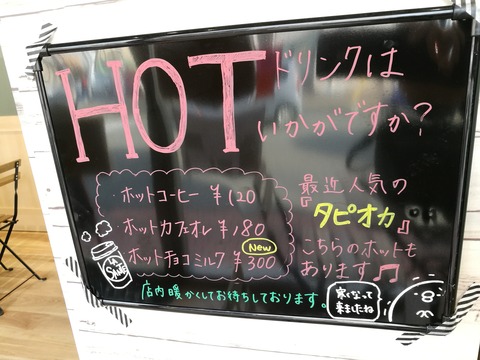 HOTドリンクは
いかがですか?
・ホットコーヒー ¥120
・ホットカフェオレ ¥180
New
・ホットチョコミルク ¥300
最近人気の
『タピオカ』
こちらのホットも
あります♫
店内暖かくしてお待ちしております。
寒くなって
来ましたね